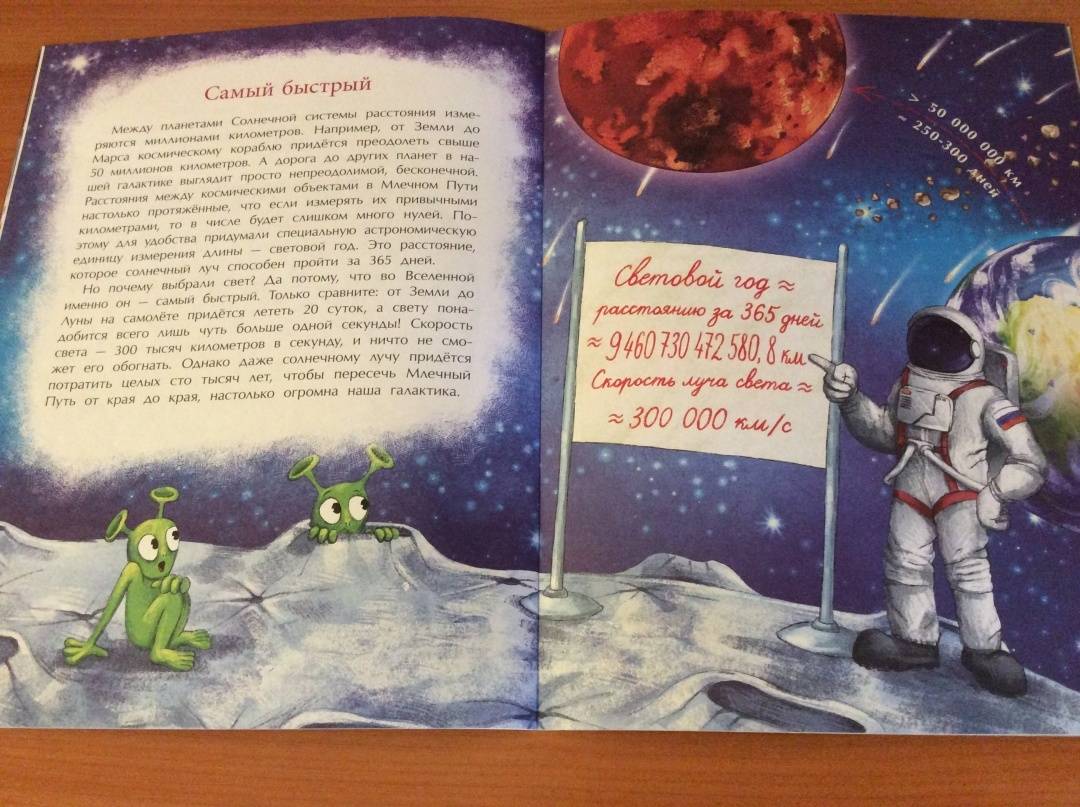 Самый быстрый
Между планетами Солнечной системы расстояния изме-
ряются миллионами километров. Например, от Земли до
Марса космическому кораблю придётся преодолеть свыше
50 миллионов километров. А дорога до других планет в на-
шей галактике выглядит просто непреодолимой, бесконечной.
Расстояния между космическими объектами в Млечном Пути
настолько протяжённые, что если измерять их привычными
километрами, то в числе будет слишком много нулей. По-
этому для удобства придумали специальную астрономическую
единицу измерения длины — световой год. Это расстояние,
которое солнечный луч способен пройти за 365 дней.
Но почему выбрали свет? Да потому, что во Вселенной
именно он — самый быстрый. Только сравните: от Земли до
Луны на самолёте придётся лететь 20 суток, а свету пона-
добится всего лишь чуть больше одной секунды! Скорость
света — 300 тысяч километров в секунду, и ничто не смо-
жет его обогнать. Однако даже солнечному лучу придётся
потратить целых сто тысяч лет, чтобы пересечь Млечный
Путь от края до края, настолько огромна наша галактика.
> 50 000 000 км
~ 250-300 дней
Световой год ≈
расстоянию за 365 дней
≈ 9 460 730 472 580, 8 км
Скорость луча света ≈
≈ 300 000 км/с